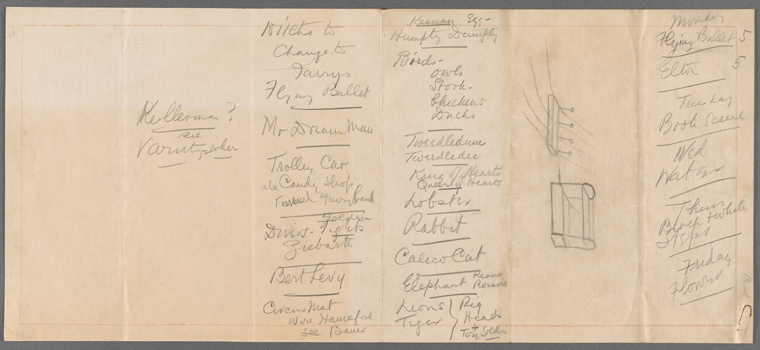 Kellerman?
see
Witchs to
Change to
Fairys
Flying Ballet
Mr Dream Man
Trolley Car
ala Candy Shop
Fairy
Divers-
Bert Levy
Circus Mat
Wire Hanneford
See Bauer
Keenan Egg-
Humpty Dumpty
Birds-
Owls
Stork
Chickens
Ducks
Tweedledum
Tweedledee
King of Hearts
Queen of Hearts
Lobster
Rabbit
Calico Cat
Elephant
Lions
Tiger
Big
Heads
+
Monday
Flying Ballet 5
5
Tuesday
Book Scene
Wed
Water
Thurs
Black + white
Steps
Friday
Flowers